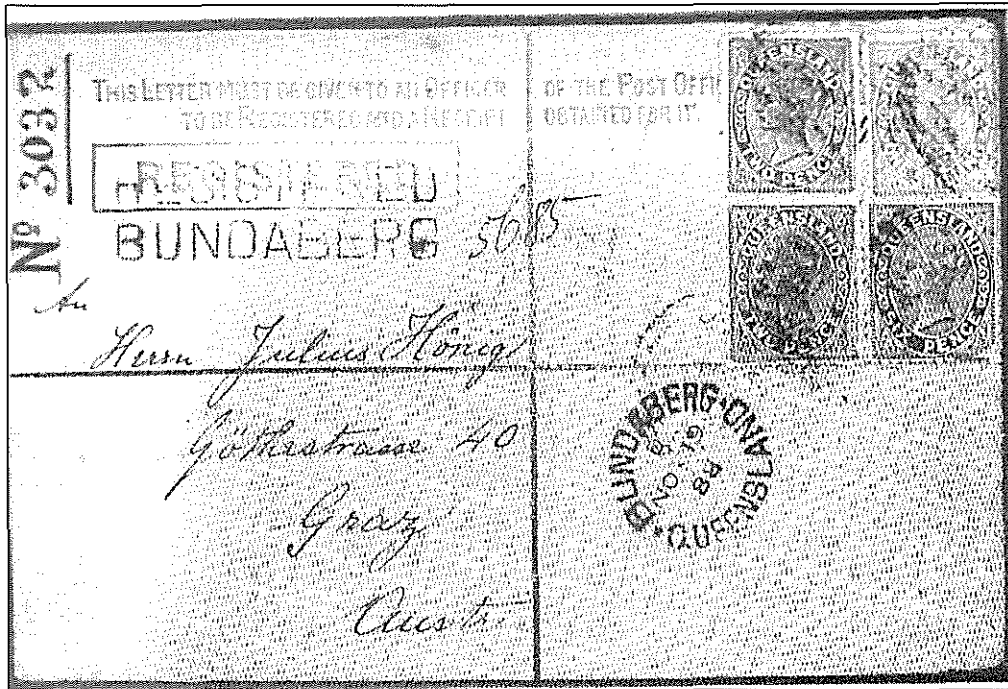 No 3032
THIS LETTER MUST BE GIVEN TO AN OFFICER OF THE POST OFFI
TO BE REGISTERED AND A RECEIPT OBTAINED FOR IT.
REGISTERED
BUNDABERG 5685
An
Herrn Julius Hönig
Göthestrasse 40
Graz
Austr
QUEENSLAND
TWO PENCE
QUEENSLAND
TWO PENCE
QUEENSLAND
PENCE
BUNDABERG QUEENSLAND
NO 19
88